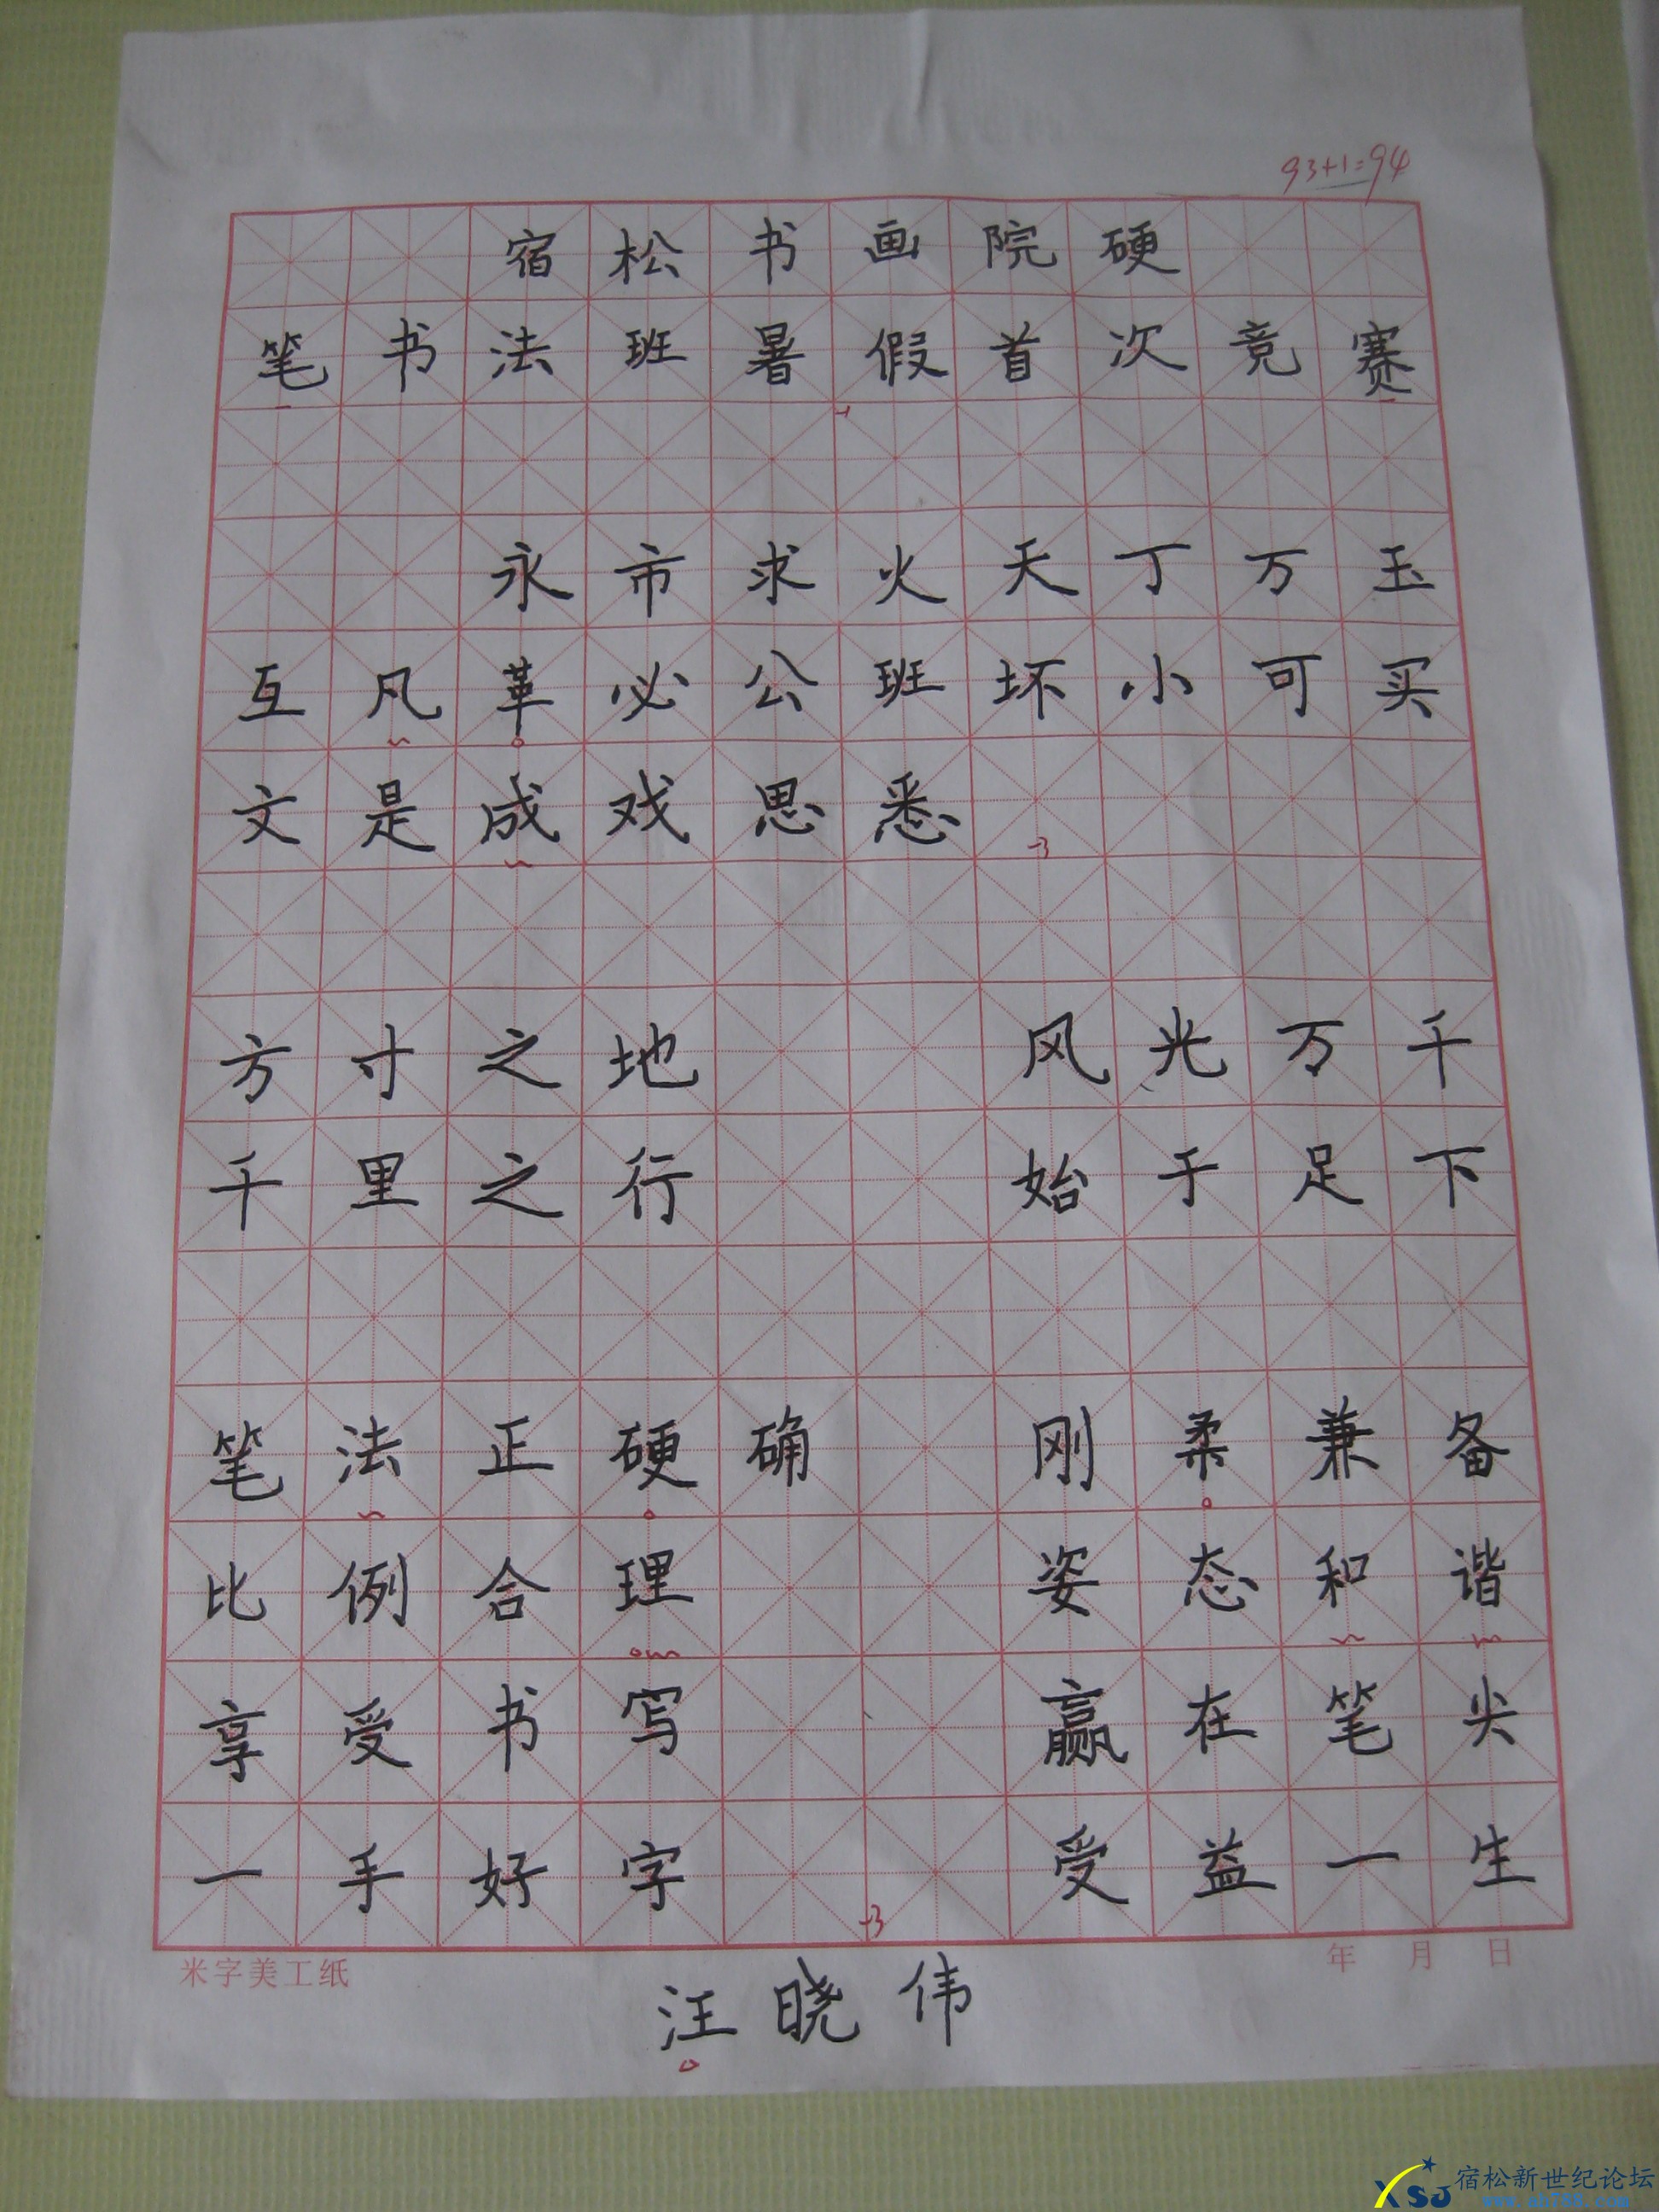 93+1=94
宿松书画院硬
笔书法班暑假首次竞赛
-1
永市求火天丁万玉
互凡革必公班坏小可买
文是成戏思悉
-3
方寸之地 风光万千
千里之行 始于足下
笔法正硬确 刚柔兼备
比例合理 姿态和谐
享受书写 赢在笔尖
一手好字 受益一生
-3
米字美工纸 年 月 日
汪晓伟
XSJ 宿松新世纪论坛
www.ah788.com